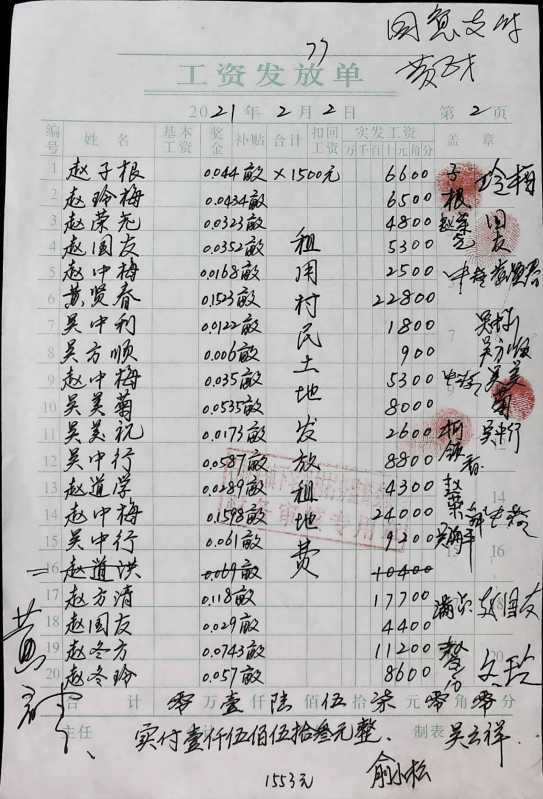 同意支付
77
工资发放单
2021年2月2日 第2页
编号 姓名 基本工资 奖金 补贴 合计 扣回工资 实发工资 万千百十元角分 盖章
1 赵子根 0.044亩 ×1500元 6600 子根 玲梅
2 赵玲梅 0.0434亩 6500
3 赵荣尧 0.0323亩 4800 赵荣尧 国友
4 赵国友 0.0352亩 5300
5 赵中梅 0.0168亩 2500 中梅
6 黄贤春 0.1523亩 22800
7 吴中利 0.0122亩 1800
8 吴方顺 0.006亩 900 吴方顺
9 赵中梅 0.035亩 5300 吴美菊
10 吴美菊 0.0535亩 8000
11 吴美祝 0.0173亩 2600 吴中行
12 吴中行 0.0587亩 8800
13 赵道学 0.0289亩 4300
14 赵中梅 0.1598亩 24000
15 吴中行 0.061亩 9200
16 赵道洪 0.069亩 10400
17 赵方清 0.118亩 17700 赵国友
18 赵国友 0.029亩 4400
19 赵冬方 0.0743亩 11200
20 赵冬玲 0.057亩 8600
租用村民土地发放租地费
合计 零万壹仟陆佰伍拾柒元零角零分
主任 制表 吴云祥
实付壹仟伍佰伍拾叁元整.
1553元 俞小松